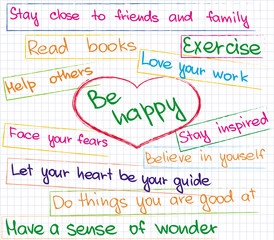 Stay close to friends and family
Read books
Exercise
Love your work
Help others
Be
happy
Face your fears
Stay inspired
Believe in yourself
Let your heart be your guide
Do things you are good at
Have a sense of wonder